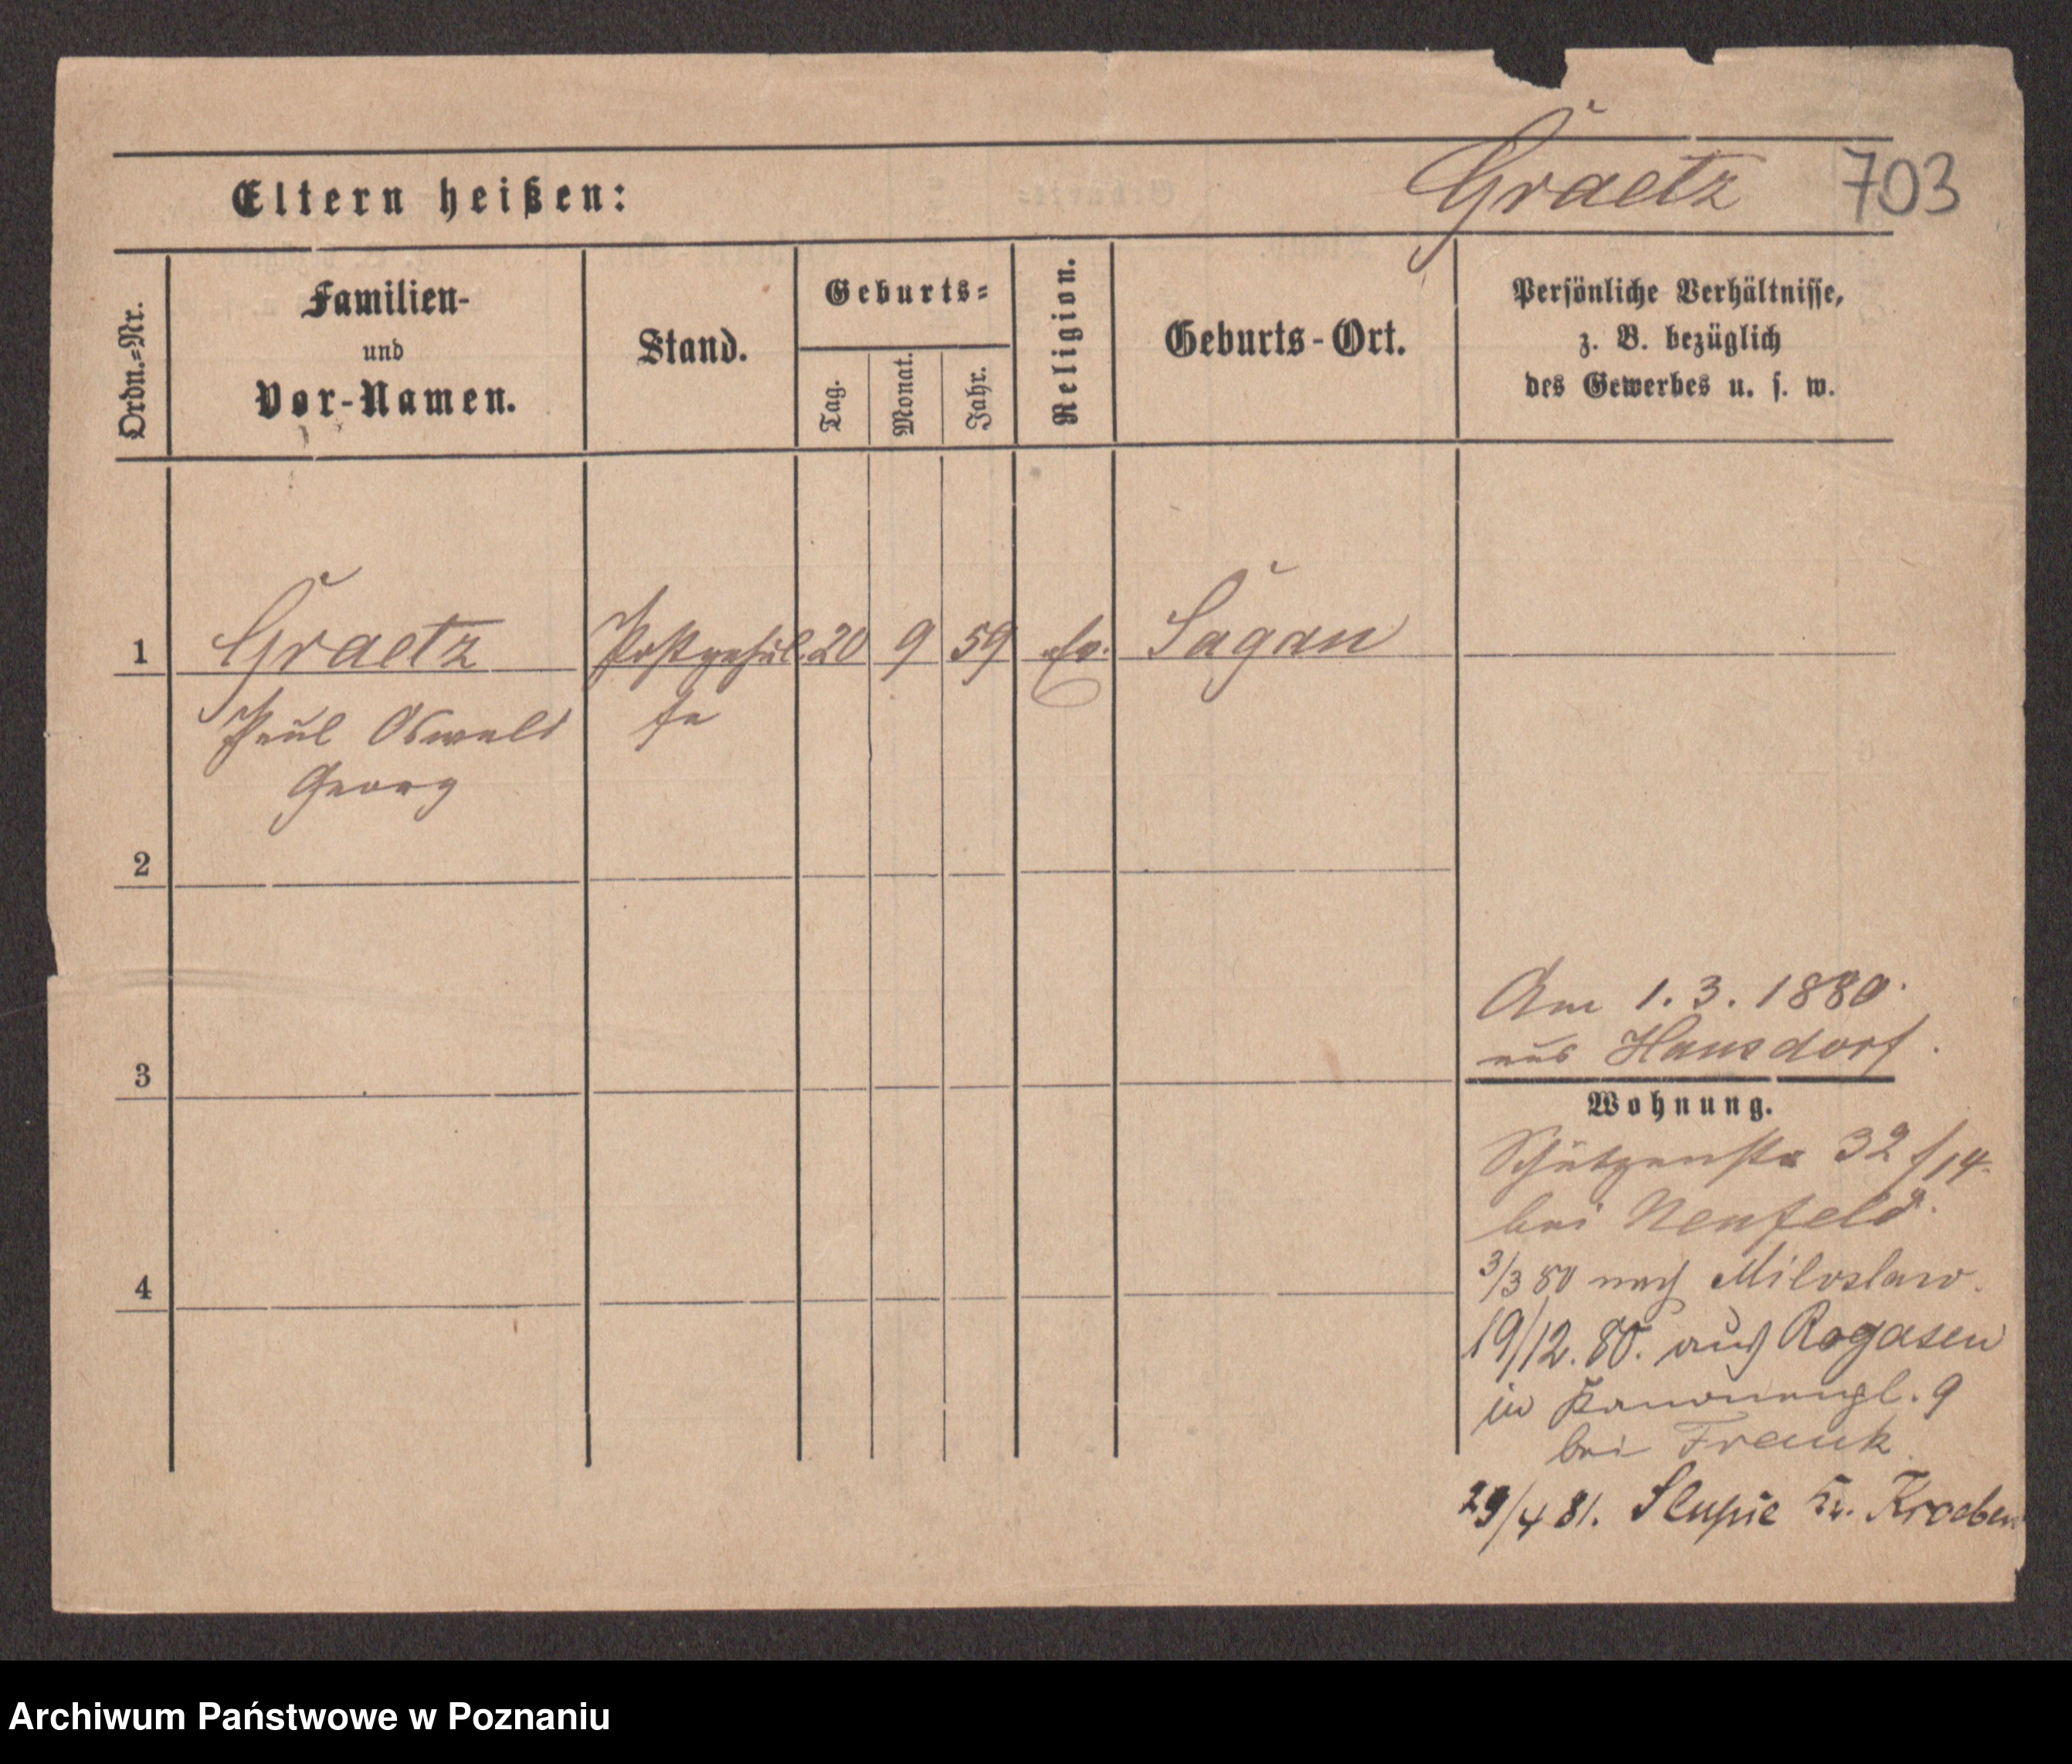 Graetz 703
Eltern heißen:
Ordn.=Nr.
Familien-
und
Vor-Namen.
Stand.
Geburts=
Tag.
Monat.
Jahr.
Religion.
Geburts-Ort.
Persönliche Verhältnisse,
z. B. bezüglich
des Gewerbes u. s. w.
1 Graetz Postgehül 20 9 59 ev. Sagan
Paul Oswald fe
Georg
2
3
4
Am 1.3.1880.
aus Hansdorf.
Wohnung.
Schützenstr 32 /14.
bei Neufeld.
3/3 80 nach Miloslaw.
19/12. 80. aus Rogasen
in Kanonenpl. 9
bei Frank
29/4 81. Slupie Kr. Kroeben
Archiwum Państwowe w Poznaniu